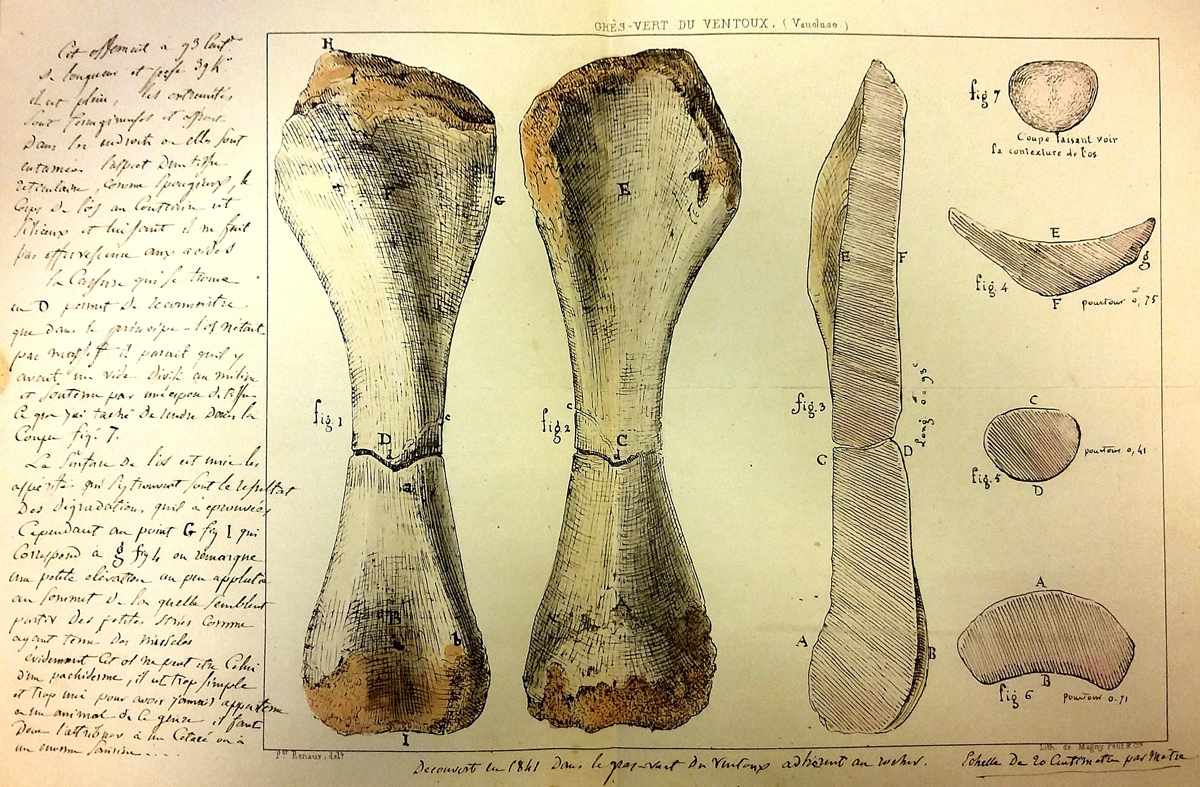 GRÈS-VERT DU VENTOUX. (Vaucluse.)
Cet ossement à 93 Centres
de longueur et pèse 39 k°
il est plein, les extremités
sont ferrugineuses et offrent
Dans les endroits ou elles sont
entamées l'aspect D'un tissu
reticulaire, comme spongieux, le
Corps de l'os au Contraire est
siliceux et luisant il ne fait
pas effervescence aux acides
la Cassure qui se trouve
en D permet de reconnoitre
que dans le principe l'os n'etait
pas massif il parait qu'il y
avait un vide Divisé au milieu
et soutenu par une espece de tissu
Ce que j'ai taché De rendre Dans la
Coupe fig. 7.
La surface de l'os est unie les
aspérités qui s'y trouvent sont le resultat
Des Dégradations qu'il a eprouvées
Cependant au point G fig 1 qui
Correspond à g fig 4 on remarque
une petite elévation un peu applatie
au sommet de la quelle semblent
partir Des petites stries Comme
ayant tenu Des muscles
évidemment Cet os ne peut etre Celui
d'un pachiderme, il est trop simple
et trop uni pour avoir jamais appartenu
a un animal de Ce genre il faut
Donc l'attribuer à un Cetacé ou à
un enorme saurien ...
H
f
G
fig 1
e
D
d
a
B
b
I
E
fig 2
c
C
d
A
E
F
fig 3
long. 0, 93
C
D
A
B
fig 7
Coupe faisant voir
la contexture de l'os
E
g
fig. 4
F
pourtour 0, 75
C
pourtour 0, 41
fig. 5
D
A
B
fig 6
pourtour 0.71
Per Renaux, delt
Lith. de Magny Petit & Cie
Decouvert en 1841 Dans le gres-vert Du Ventoux adhérent au rocher.
Echelle De 20 Centimetres par Metre